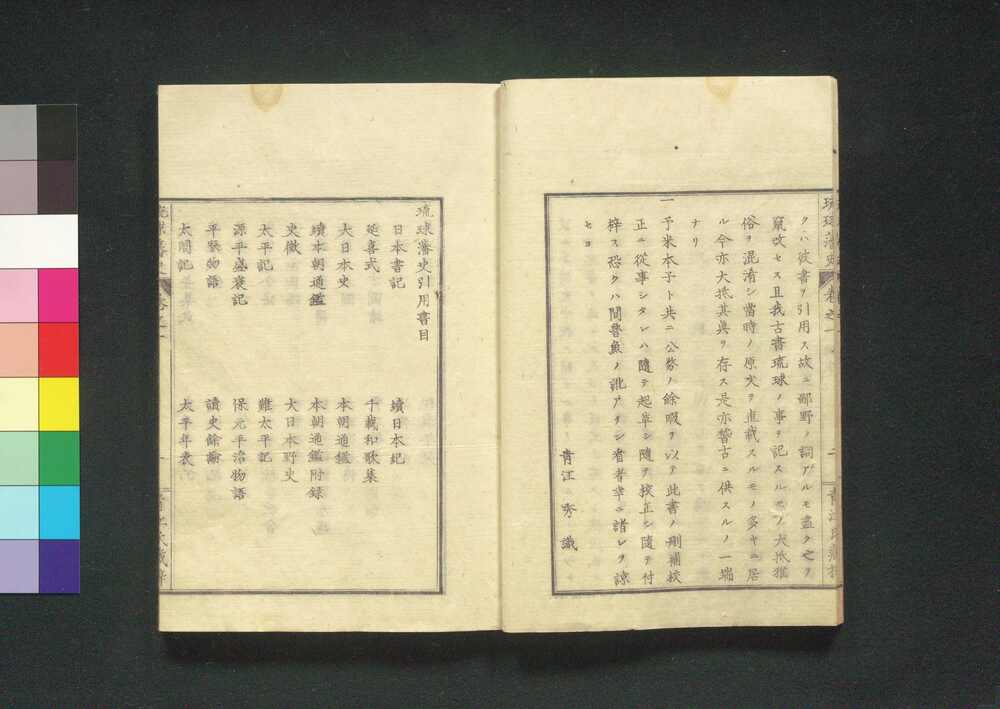 琉球藩史 卷之一
クハ彼書ヲ引用ス故ニ鄙野ノ詞アルモ盡ク之ヲ
竄改セス且我古書琉球ノ事ヲ記スルモノ大抵雅
俗ヲ混淆シ當時ノ原文ヲ直載スルモノ多キニ居
ル今亦大抵其眞ヲ存ス是亦稽古ニ供スルノ一端
ナリ
一予米本子ト共ニ公務ノ餘暇ヲ以テ此書ノ刪補校
正ニ從事シタレハ隨テ起草シ隨テ校正シ隨テ付
梓ス恐クハ間魯魚ノ訛アラン看者幸ニ諸レヲ諒
セヨ
青江 秀 識
琉球藩史引用書目
日本書記 續日本紀
延喜式 千載和歌集
大日本史 本朝通鑑
續本朝通鑑 本朝通鑑附録
史徴 大日本野史
太平記 難太平記
源平盛衰記 保元平治物語
平家物語 讀史餘論
太閤記 太平年表